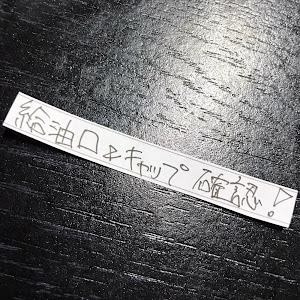 給油口&キャップ確認!